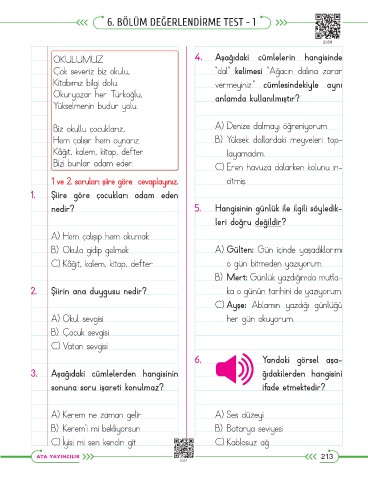 6. BÖLÜM DEĞERLENDİRME TEST - 1
OKULUMUZ
Çok severiz biz okulu,
Kitabımız bilgi dolu.
Okuryazar her Türkoğlu,
Yükselmenin budur yolu.
Biz okullu çocuklarız,
Hem çalışır hem oynarız.
Kâğıt, kalem, kitap, defter
Bizi bunlar adam eder.
1 ve 2. soruları şiire göre cevaplayınız.
1. Şiire göre çocukları adam eden
nedir?
A) Hem çalışıp hem okumak
B) Okula gidip gelmek
C) Kâğıt, kalem, kitap, defter
2. Şiirin ana duygusu nedir?
A) Okul sevgisi
B) Çocuk sevgisi
C) Vatan sevgisi
3. Aşağıdaki cümlelerden hangisinin
sonuna soru işareti konulmaz?
A) Kerem ne zaman gelir
B) Kerem'i mi bekliyorsun
C) İyisi mi sen kendin git
4. Aşağıdaki cümlelerin hangisinde
"dal" kelimesi "Ağacın dalına zarar
vermeyiniz." cümlesindekiyle aynı
anlamda kullanılmıştır?
A) Denize dalmayı öğreniyorum.
B) Yüksek dallardaki meyveleri top-
layamadım.
C) Eren havuza dalarken kolunu in-
citmiş.
5. Hangisinin günlük ile ilgili söyledik-
leri doğru değildir?
A) Gülten: Gün içinde yaşadıklarımı
o gün bitmeden yazıyorum.
B) Mert: Günlük yazdığımda mutla-
ka o günün tarihini de yazıyorum.
C) Ayşe: Ablamın yazdığı günlüğü
her gün okuyorum.
6. Yandaki görsel aşa-
ğıdakilerden hangisini
ifade etmektedir?
A) Ses düzeyi
B) Batarya seviyesi
C) Kablosuz ağ
ATA YAYINCILIK
213